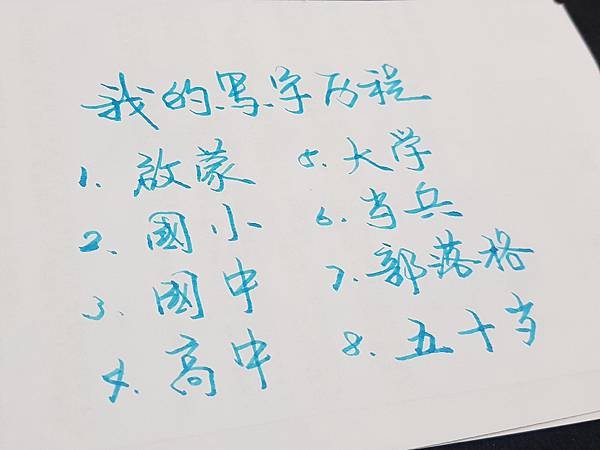 我的寫字历程
1. 啟蒙
2. 國小
3. 國中
4. 高中
5. 大学
6. 当兵
7. 部落格
8. 五十岁